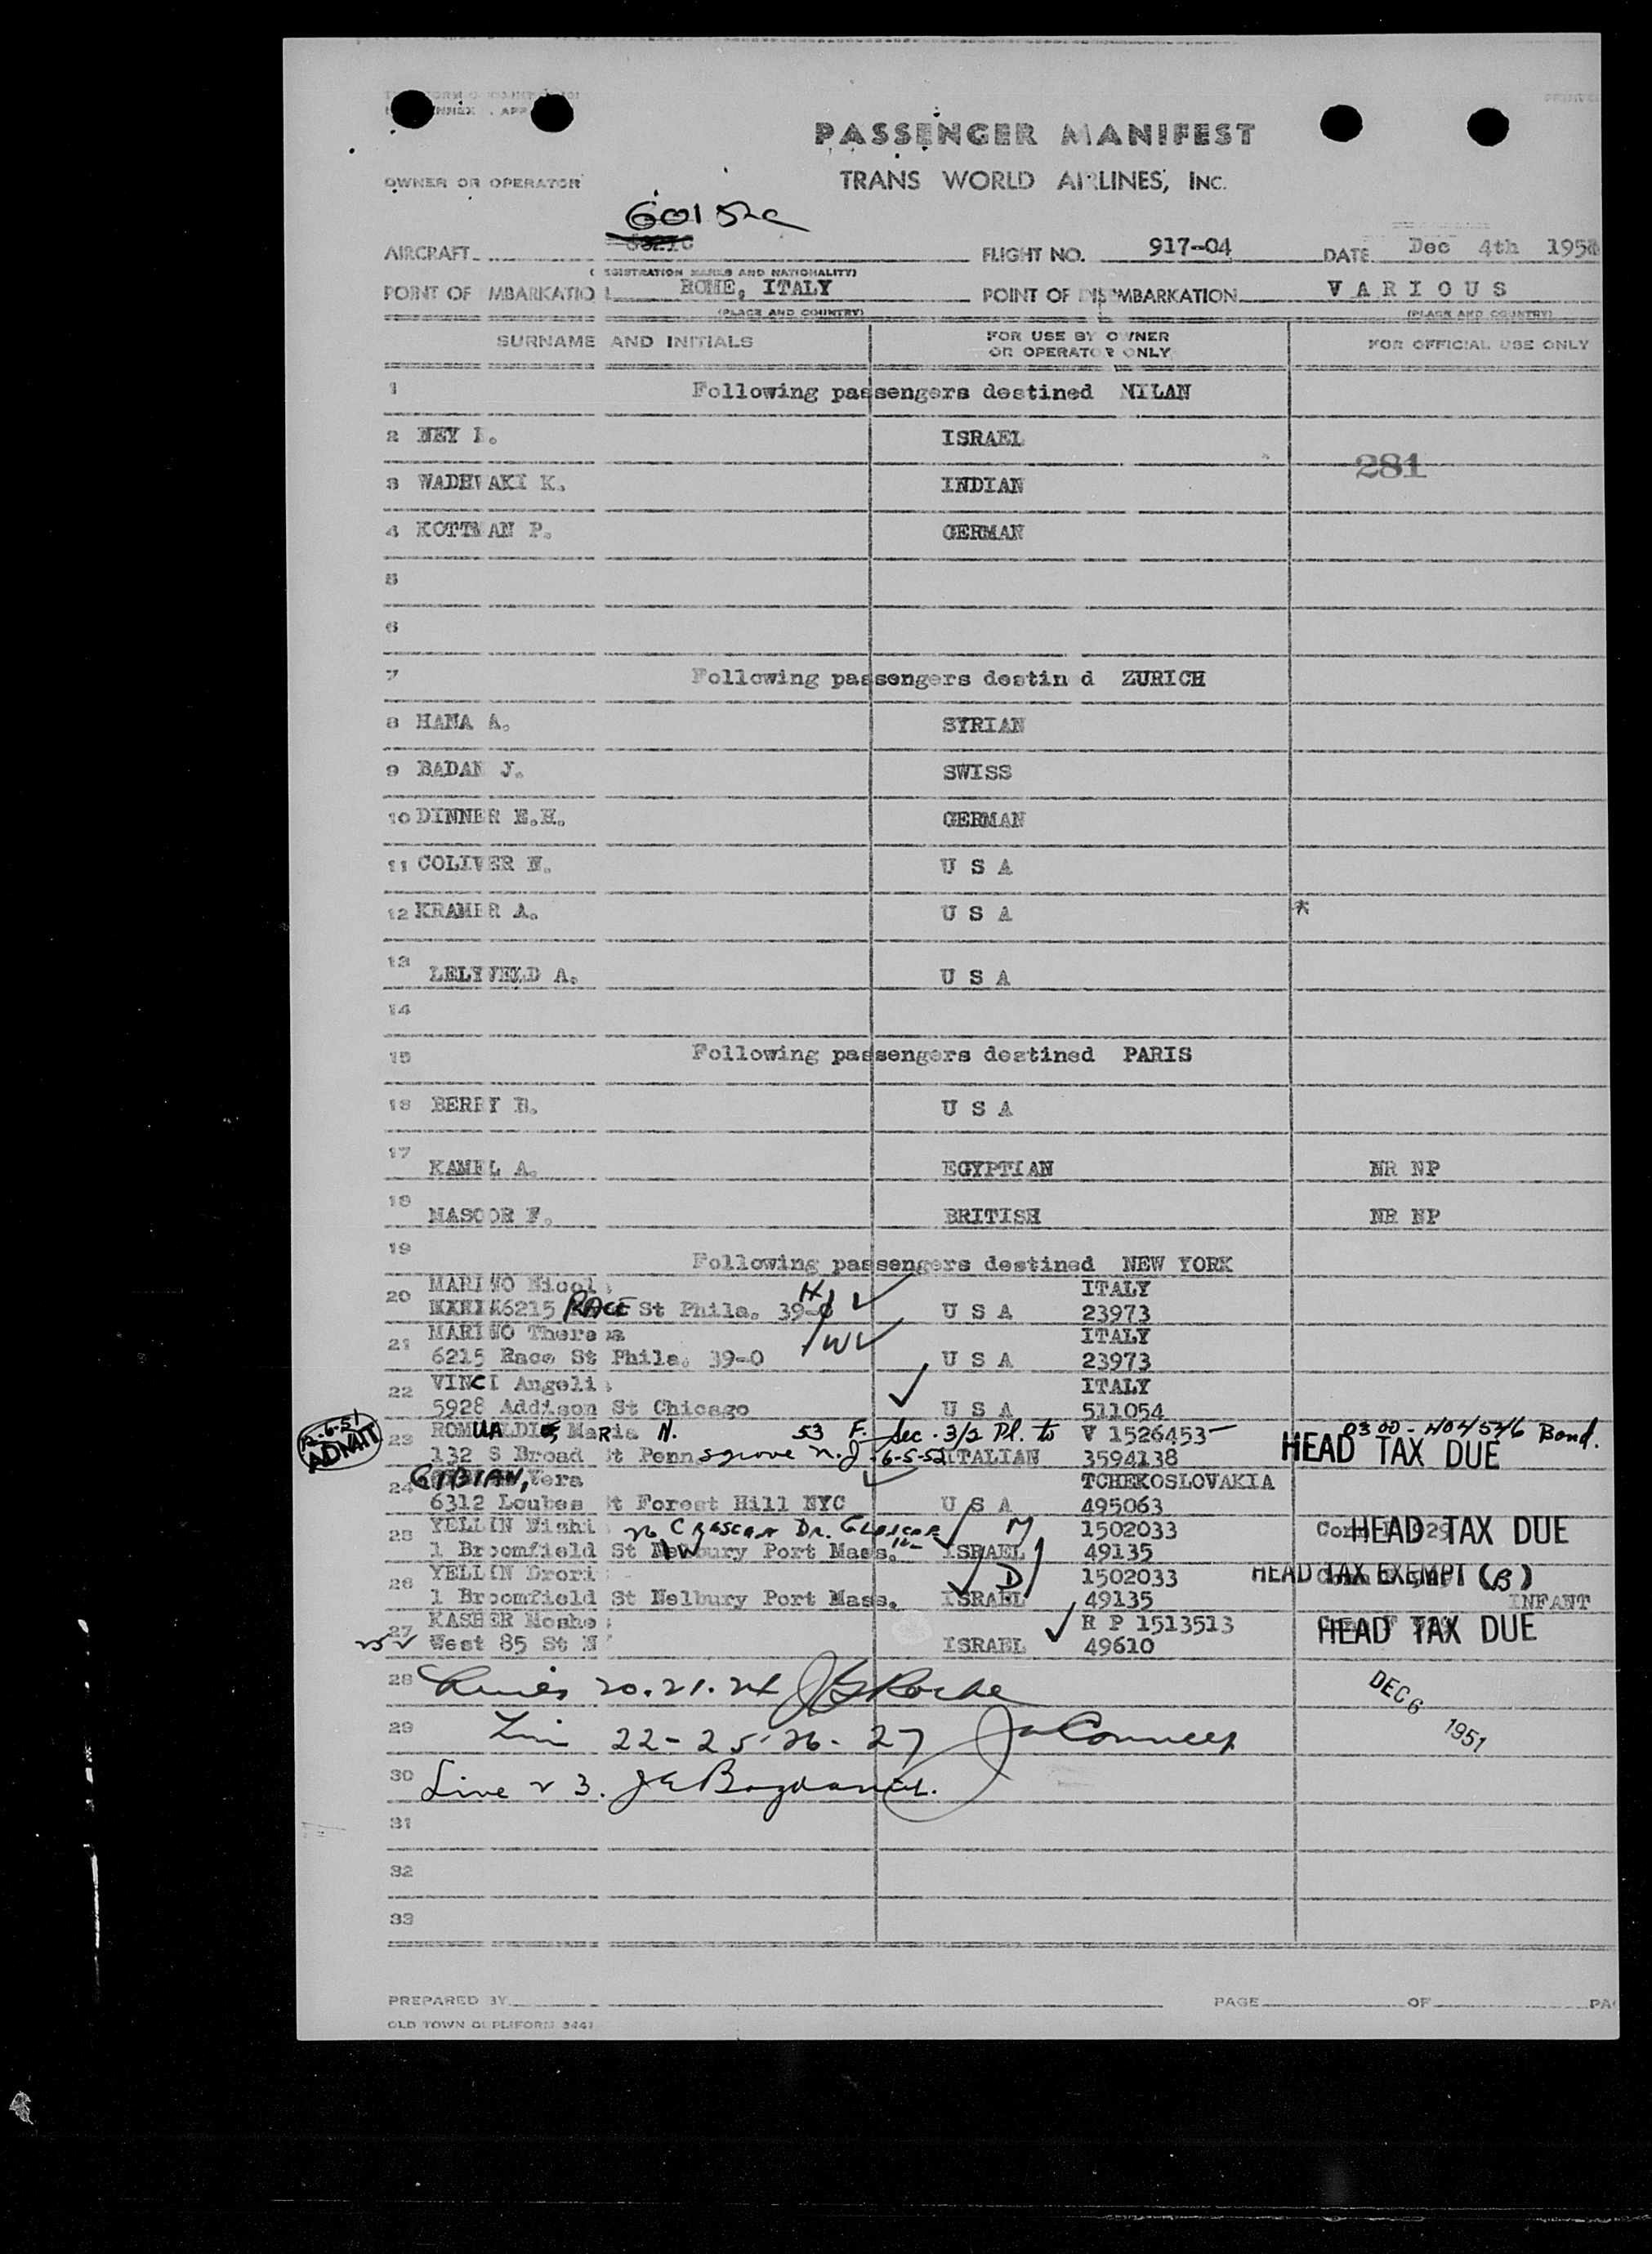 PASSENGER MANIFEST
OWNER OR OPERATOR
TRANS WORLD AIRLINES, INC.
6015 2c
AIRCRAFT
FLIGHT NO. 917-04
DATE Dec 4th 1951
(REGISTRATION MARKS AND NATIONALITY)
POINT OF EMBARKATION ROME, ITALY
POINT OF DISEMBARKATION VARIOUS
(PLACE AND COUNTRY) (PLACE AND COUNTRY)
SURNAME AND INITIALS
FOR USE BY OWNER OR OPERATOR ONLY
FOR OFFICIAL USE ONLY
1 Following passengers destined MILAN
2 NEY I. ISRAEL
281
3 WADHWAKI K. INDIAN
4 KOTTMAN P. GERMAN
5
6
7 Following passengers destin d ZURICH
8 HANA A. SYRIAN
9 BADAN J. SWISS
10 DINNER E.H. GERMAN
11 COLIVER N. U S A
12 KRAMER A. U S A *
13 LELYVELD A. U S A
14
15 Following passengers destined PARIS
16 BERRY B. U S A
17 KAMEL A. EGYPTIAN NR NP
18 MASOOR F. BRITISH NR NP
19 Following passengers destined NEW YORK
MARINO Nicol H ITALY
20 6215 RACE St Phila. 39-0 U S A 23973
MARINO Theresa W ITALY
21 6215 Race St Phila. 39-0 U S A 23973
22 VINCI Angeli ITALY
5928 Addison St Chicago U S A 511054
12-6-51 ADMIT
23 ROMUALDI, Maria N. 53 F. Sec. 3/2 Pl. to V 1526453 0300-H04546 Bond.
132 S Broad St Pennsgrove N.J. 6-5-52 ITALIAN 3594138 HEAD TAX DUE
24 GIBIAN, Vera TCHEKOSLOVAKIA
6312 Loubes St Forest Hill NYC U S A 495063
25 YELLIN Nishi M 1502033 HEAD TAX DUE
1 Broomfield St Newbury Port Mass. ISRAEL 49135
26 YELLIN Drori D 1502033 HEAD TAX EXEMPT (B)
1 Broomfield St Nelbury Port Mass. ISRAEL 49135 INFANT
KASHER Moshe R P 1513513 HEAD TAX DUE
27 West 85 St N ISRAEL 49610
28 Lines 20.21.24 JG Roche
DEC 6 1951
29 Lin 22-25-26-27
30 Line 23.
31
32
33
PREPARED BY PAGE OF PA
OLD TOWN DUPLIFORM 3441